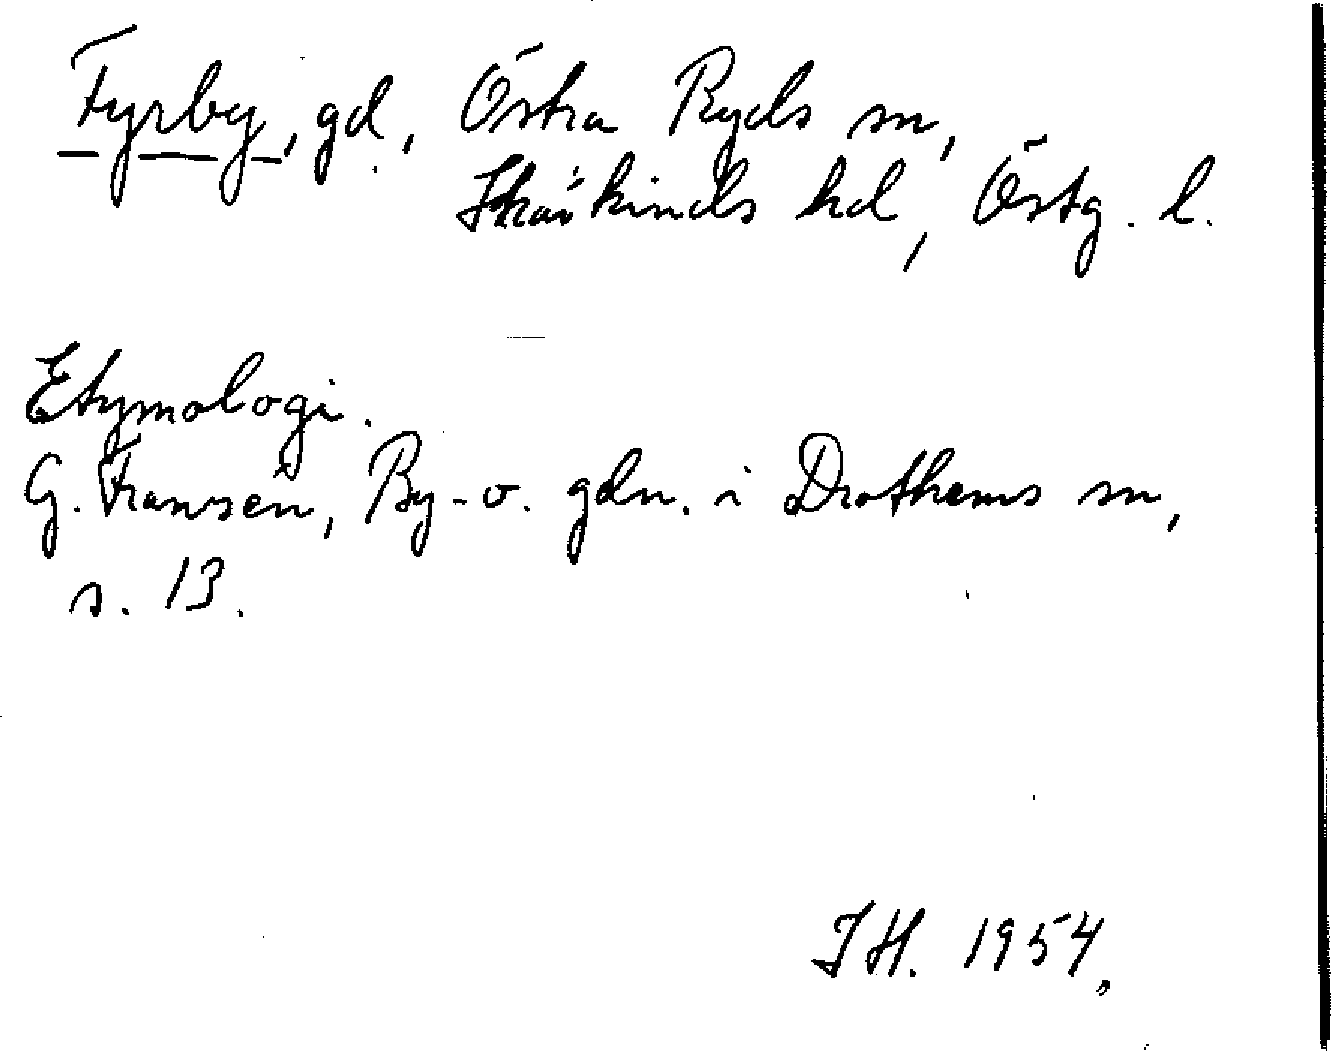 Fyrby, gd, Östra Ryds sn,
Skärkinds hd, Östg. l.
Etymologi.
G. Franzén, By- o. gdn. i Drothems sn,
s. 13.
JH. 1954.